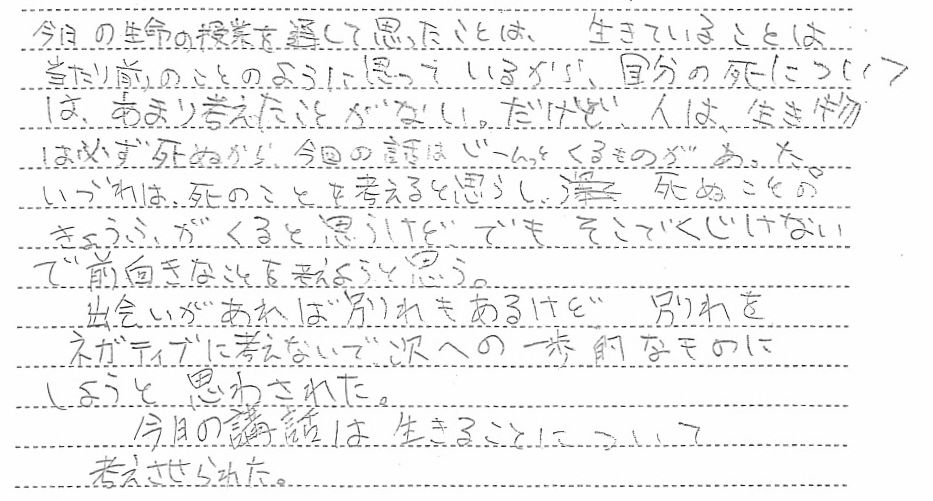 今日の生命の授業を通して思ったことは、 生きていることは
当たり前のことのように思っているから、自分の死について
は、あまり考えたことがない。だけど、人は、生き物
は必ず死ぬから、今回の話はじーんっとくるものがあった。
いづれは、死のことを考えると思うし、死ぬことの
きょうふ、がくると思うけど、でもそこでくじけない
で前向きなことを考えようと思う。
出会いがあれば別れもあるけど 別れを
ネガティブに考えないで次への一歩的なものに
しようと思わされた。
今日の講話は生きることについて
考えさせられた。